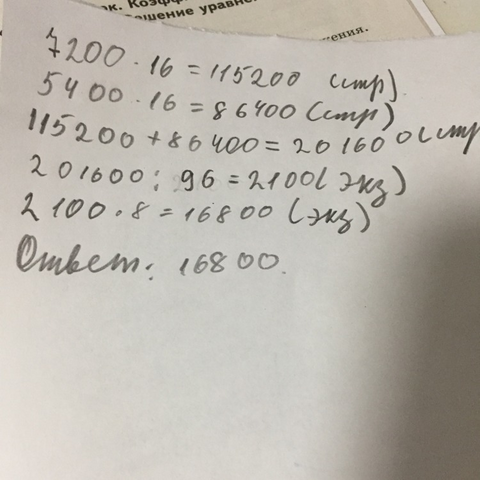 ок. Коэфф
ешение уравне
ения.
7200 · 16 = 115200 (стр).
5400 · 16 = 86400 (стр)
115200 + 86400 = 201600 (стр
201600 : 96 = 2100 (экз)
2100 · 8 = 16800 (экз)
Ответ: 16800.